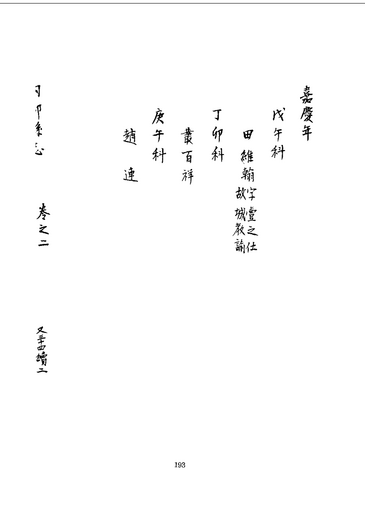 嘉慶年
戊午科
田維翰字壹之仕故城教諭
丁卯科
叢百祥
庚午科
趙連
卷之二
193